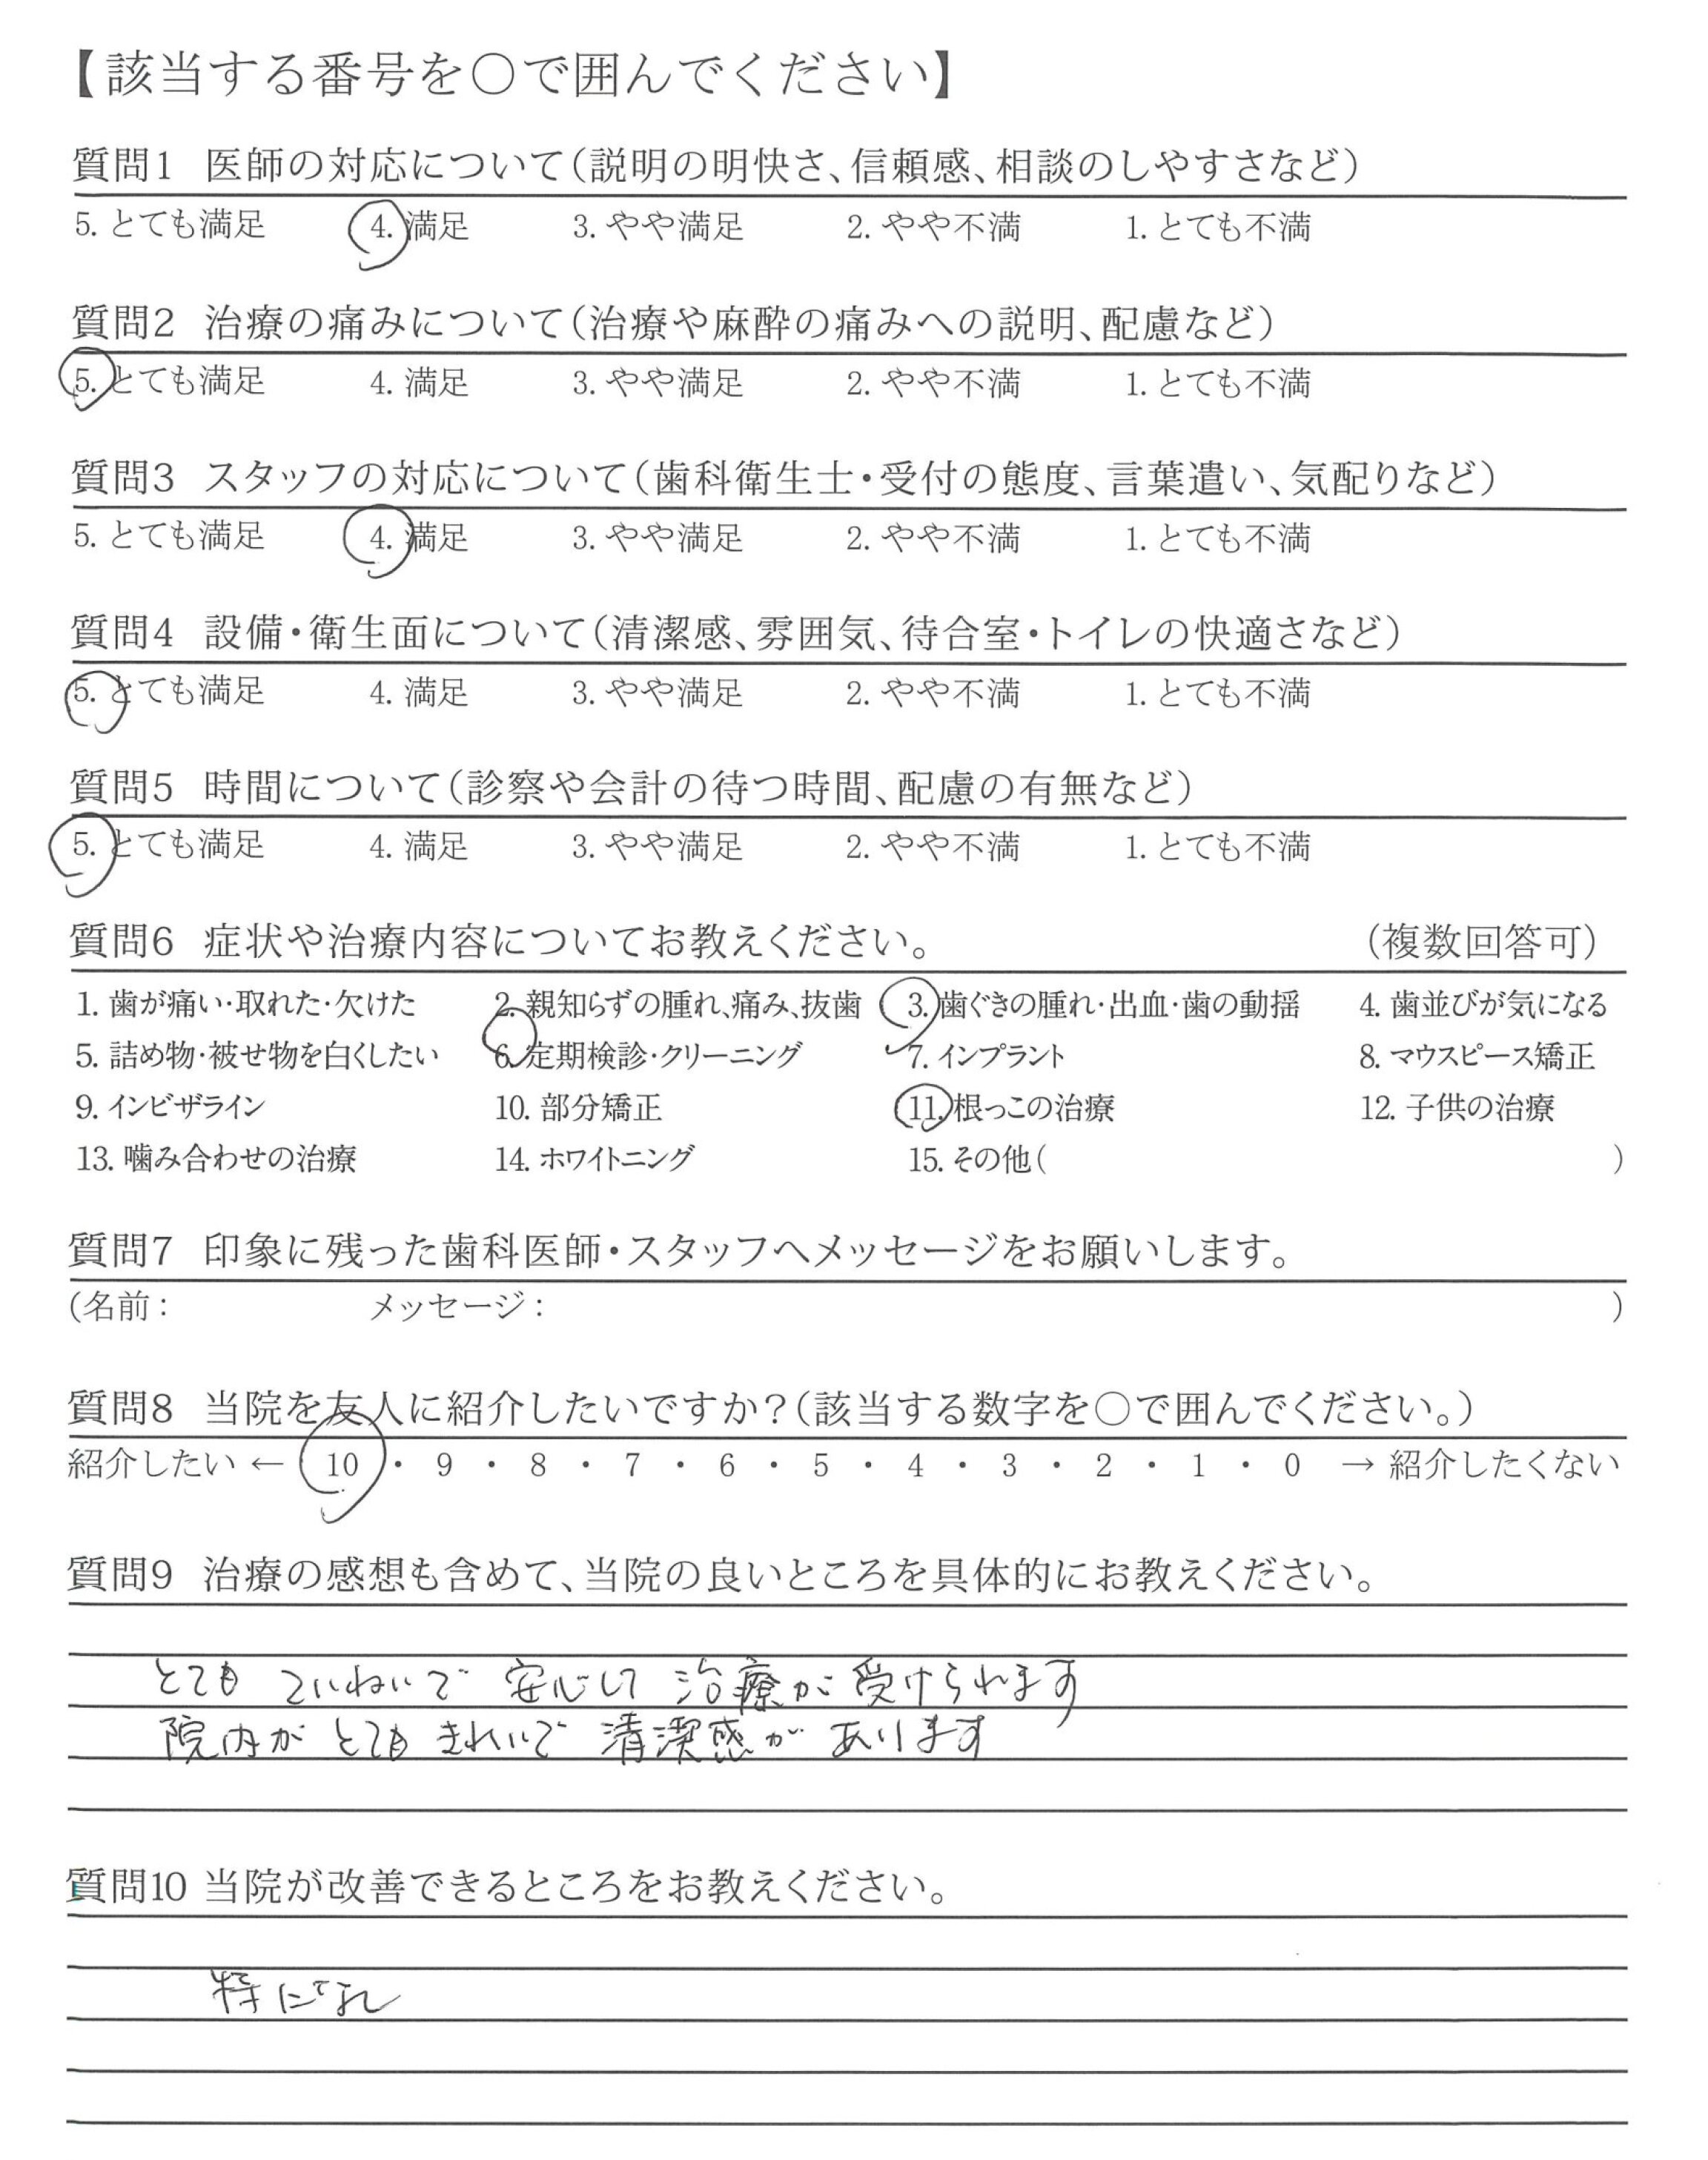 【該当する番号を〇で囲んでください】
質問1 医師の対応について(説明の明快さ、信頼感、相談のしやすさなど)
5. とても満足 4. 満足 3. やや満足 2. やや不満 1. とても不満
質問2 治療の痛みについて(治療や麻酔の痛みへの説明、配慮など)
5. とても満足 4. 満足 3. やや満足 2. やや不満 1. とても不満
質問3 スタッフの対応について(歯科衛生士・受付の態度、言葉遣い、気配りなど)
5. とても満足 4. 満足 3. やや満足 2. やや不満 1. とても不満
質問4 設備・衛生面について(清潔感、雰囲気、待合室・トイレの快適さなど)
5. とても満足 4. 満足 3. やや満足 2. やや不満 1. とても不満
質問5 時間について(診察や会計の待つ時間、配慮の有無など)
5. とても満足 4. 満足 3. やや満足 2. やや不満 1. とても不満
質問6 症状や治療内容についてお教えください。 (複数回答可)
1. 歯が痛い・取れた・欠けた 2. 親知らずの腫れ、痛み、抜歯 3. 歯ぐきの腫れ・出血・歯の動揺 4. 歯並びが気になる
5. 詰め物・被せ物を白くしたい 6. 定期検診・クリーニング 7. インプラント 8. マウスピース矯正
9. インビザライン 10. 部分矯正 11. 根っこの治療 12. 子供の治療
13. 噛み合わせの治療 14. ホワイトニング 15. その他( )
質問7 印象に残った歯科医師・スタッフへメッセージをお願いします。
(名前: メッセージ: )
質問8 当院を友人に紹介したいですか?(該当する数字を〇で囲んでください。)
紹介したい ← 10 ・ 9 ・ 8 ・ 7 ・ 6 ・ 5 ・ 4 ・ 3 ・ 2 ・ 1 ・ 0 → 紹介したくない
質問9 治療の感想も含めて、当院の良いところを具体的にお教えください。
とても ていねいで 安心して 治療が 受けられます
院内が とても きれいで 清潔感が あります
質問10 当院が改善できるところをお教えください。
特になし